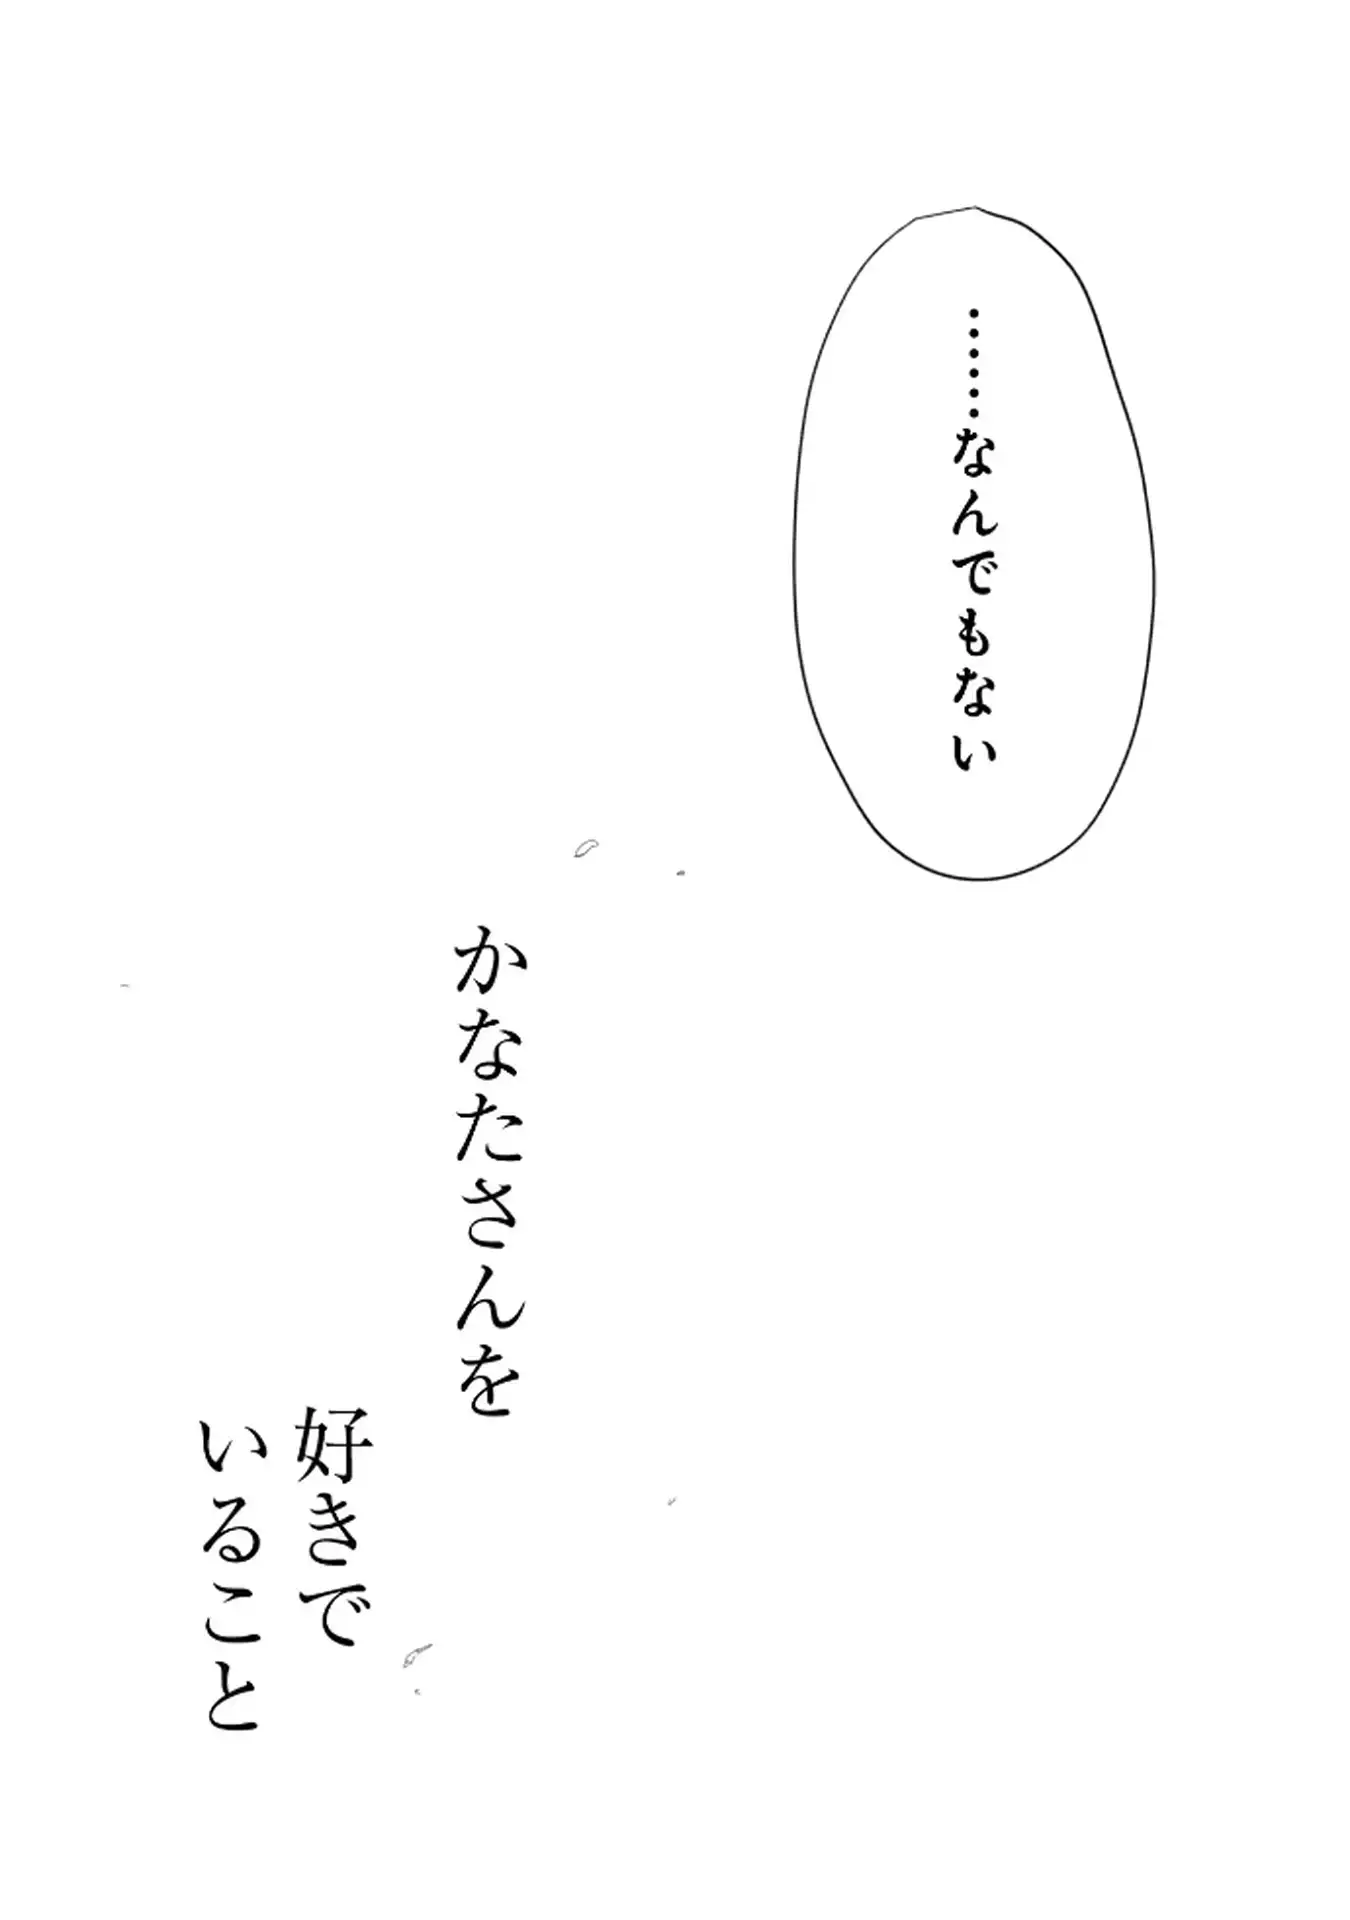 ……なんでもない
かなたさんを
好きで
いること